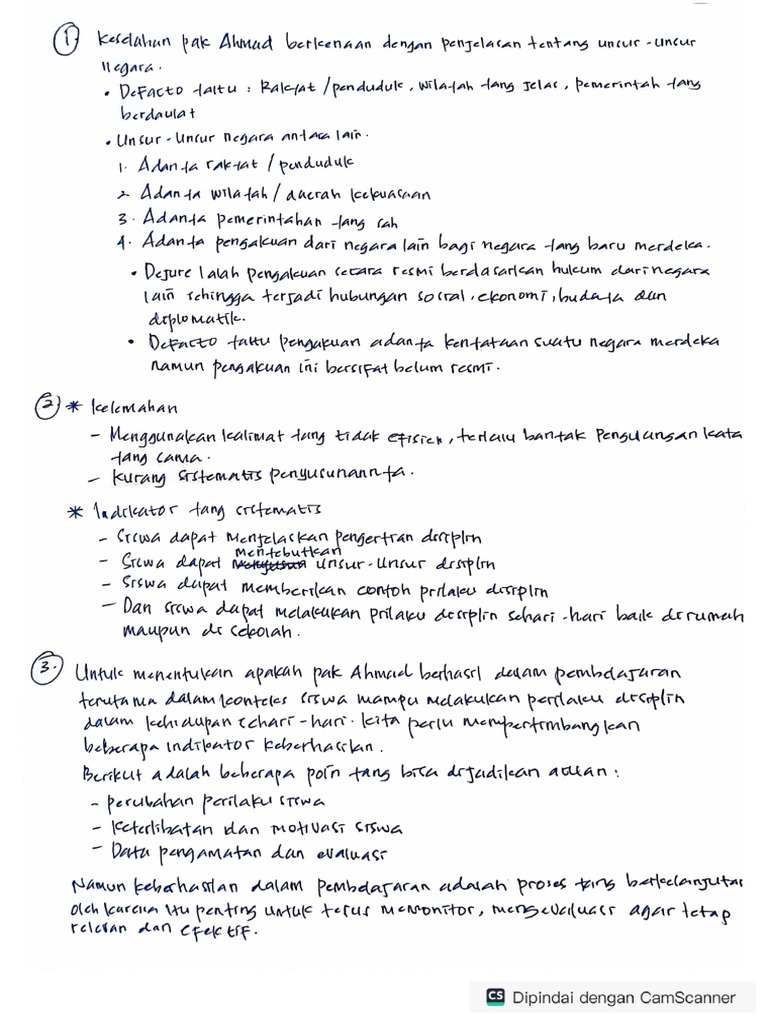 1. Kesalahan pak Ahmad berkenaan dengan penjelasan tentang unsur-unsur
negara.
• DeFacto yaitu : Rakyat / penduduk, wilayah yang jelas, pemerintah yang
berdaulat
• Unsur-Unsur negara antara lain.
1. Adanya rakyat / penduduk
2. Adanya wilayah / daerah kekuasaan
3. Adanya pemerintahan yang sah
4. Adanya pengakuan dari negara lain bagi negara yang baru merdeka.
• Dejure Ialah pengakuan secara resmi berdasarkan hukum dari negara
lain sehingga terjadi hubungan sosial, ekonomi, budaya dan
diplomatik.
• DeFacto yaitu pengakuan adanya kenyataan suatu negara merdeka
namun pengakuan ini bersifat belum resmi.
2 * Kelemahan
- Menggunakan kalimat yang tidak efisien, terlalu banyak Pengulangan kata
yang sama.
- Kurang sistematis penyusunannya.
* Indikator yang sistematis
- Siswa dapat Menjelaskan pengertian disiplin
- Siswa dapat Menyebutkan unsur-unsur disiplin
- Siswa dapat memberikan contoh prilaku disiplin
- Dan siswa dapat melakukan prilaku disiplin sehari-hari baik di rumah
maupun di sekolah.
3. Untuk menentukan apakah pak Ahmad berhasil dalam pembelajaran
terutama dalam konteks siswa mampu melakukan perilaku disiplin
dalam kehidupan sehari-hari. kita perlu mempertimbangkan
beberapa indikator keberhasilan.
Berikut adalah beberapa poin yang bisa dijadikan acuan :
- perubahan perilaku siswa
- Keterlibatan dan motivasi siswa
- Data pengamatan dan evaluasi
Namun keberhasilan dalam pembelajaran adalah proses yang berkelanjutan
oleh karena itu penting untuk terus memonitor, mengevaluasi agar tetap
relevan dan efektif.
CS Dipindai dengan CamScanner